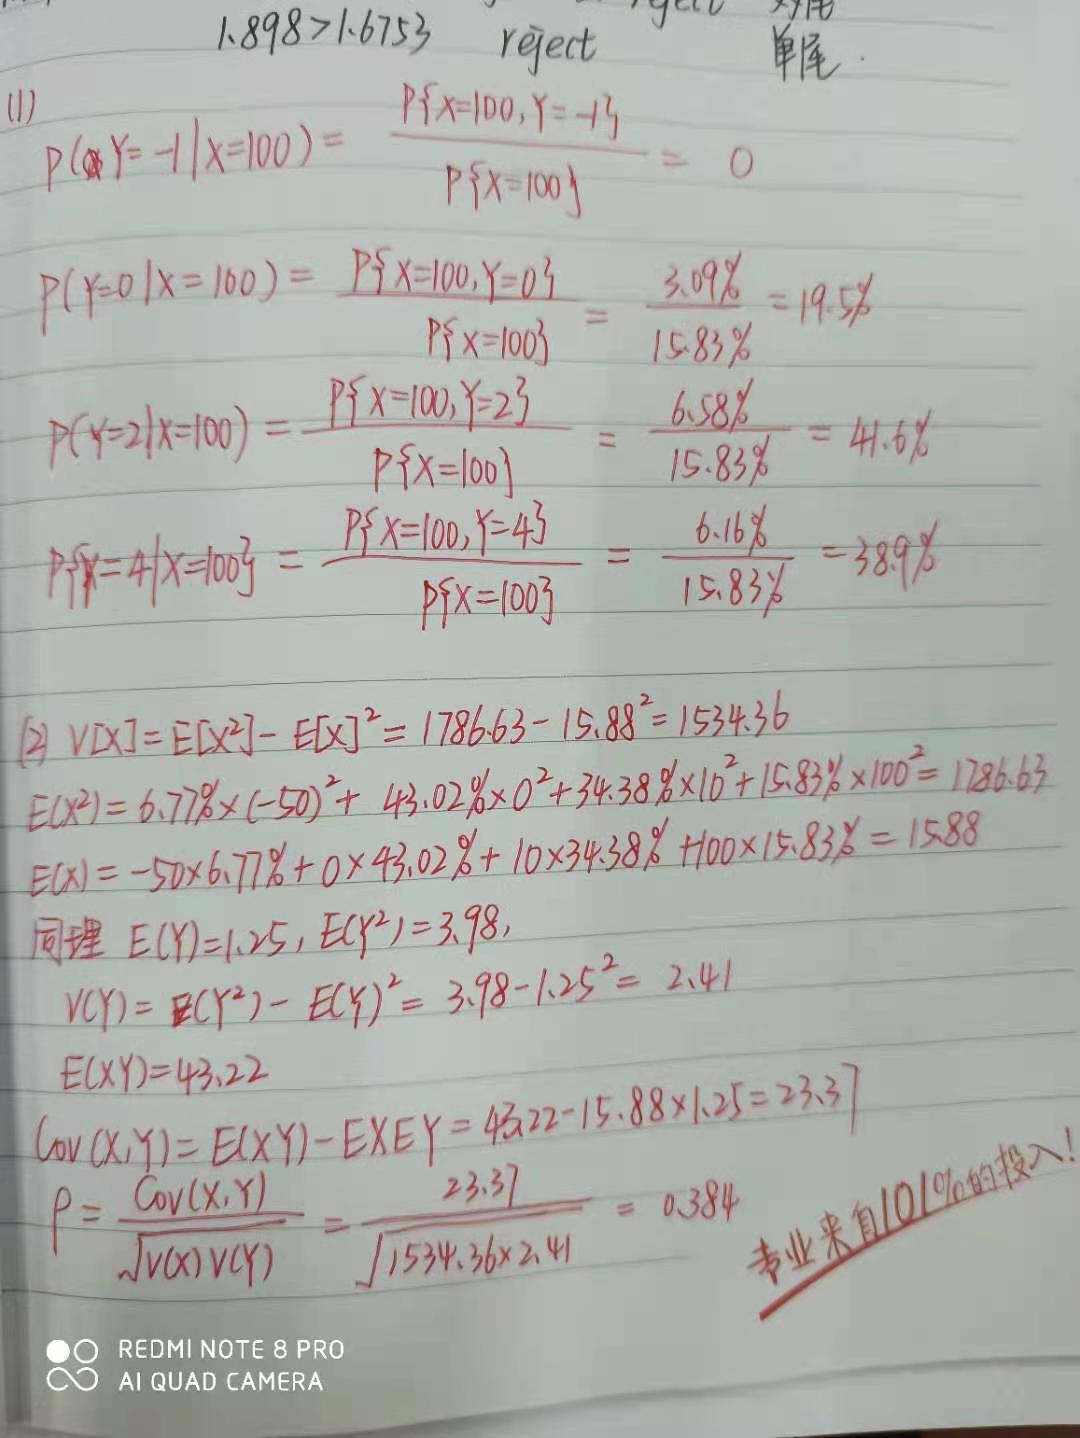 reject 双尾
1.898>1.6753 reject 单尾.
(1)
P(Y=-1|X=100) = P{X=100,Y=-1} / P{X=100} = 0
P(Y=0|X=100) = P{X=100,Y=0} / P{X=100} = 3.09% / 15.83% = 19.5%
P(Y=2|X=100) = P{X=100,Y=2} / P{X=100} = 6.58% / 15.83% = 41.6%
P{Y=4|X=100} = P{X=100,Y=4} / P{X=100} = 6.16% / 15.83% = 38.9%
(2) V[X]=E[X²]-E[X]²=1786.63-15.88²=1534.36
E(X²)=6.77%×(-50)²+43.02%×0²+34.38%×10²+15.83%×100²=1786.63
E(X)=-50×6.77%+0×43.02%+10×34.38%+100×15.83%=15.88
同理 E(Y)=1.25, E(Y²)=3.98,
V(Y)=E(Y²)-E(Y)²=3.98-1.25²=2.41
E(XY)=43.22
Cov(X,Y)=E(XY)-EXEY=43.22-15.88×1.25=23.37
ρ = Cov(X,Y) / √V(X)V(Y) = 23.37 / √1534.36×2.41 = 0.384
专业来自101%的投入!
REDMI NOTE 8 PRO
AI QUAD CAMERA